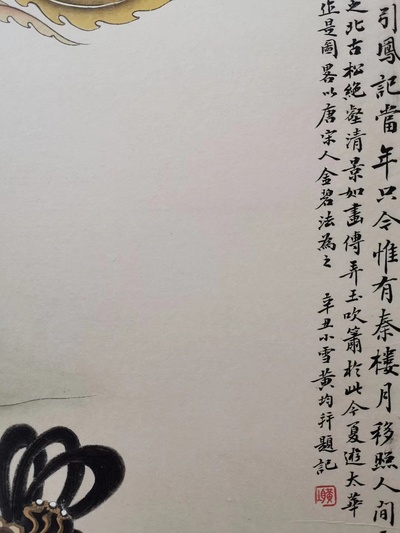 引鳳記當年只今惟有秦樓月移照人間
之北古松絶壑清景如畫傳弄玉吹簫於此今夏遊太華
作是圖畧以唐宋人金碧法為之 辛丑小雪黄均并題記